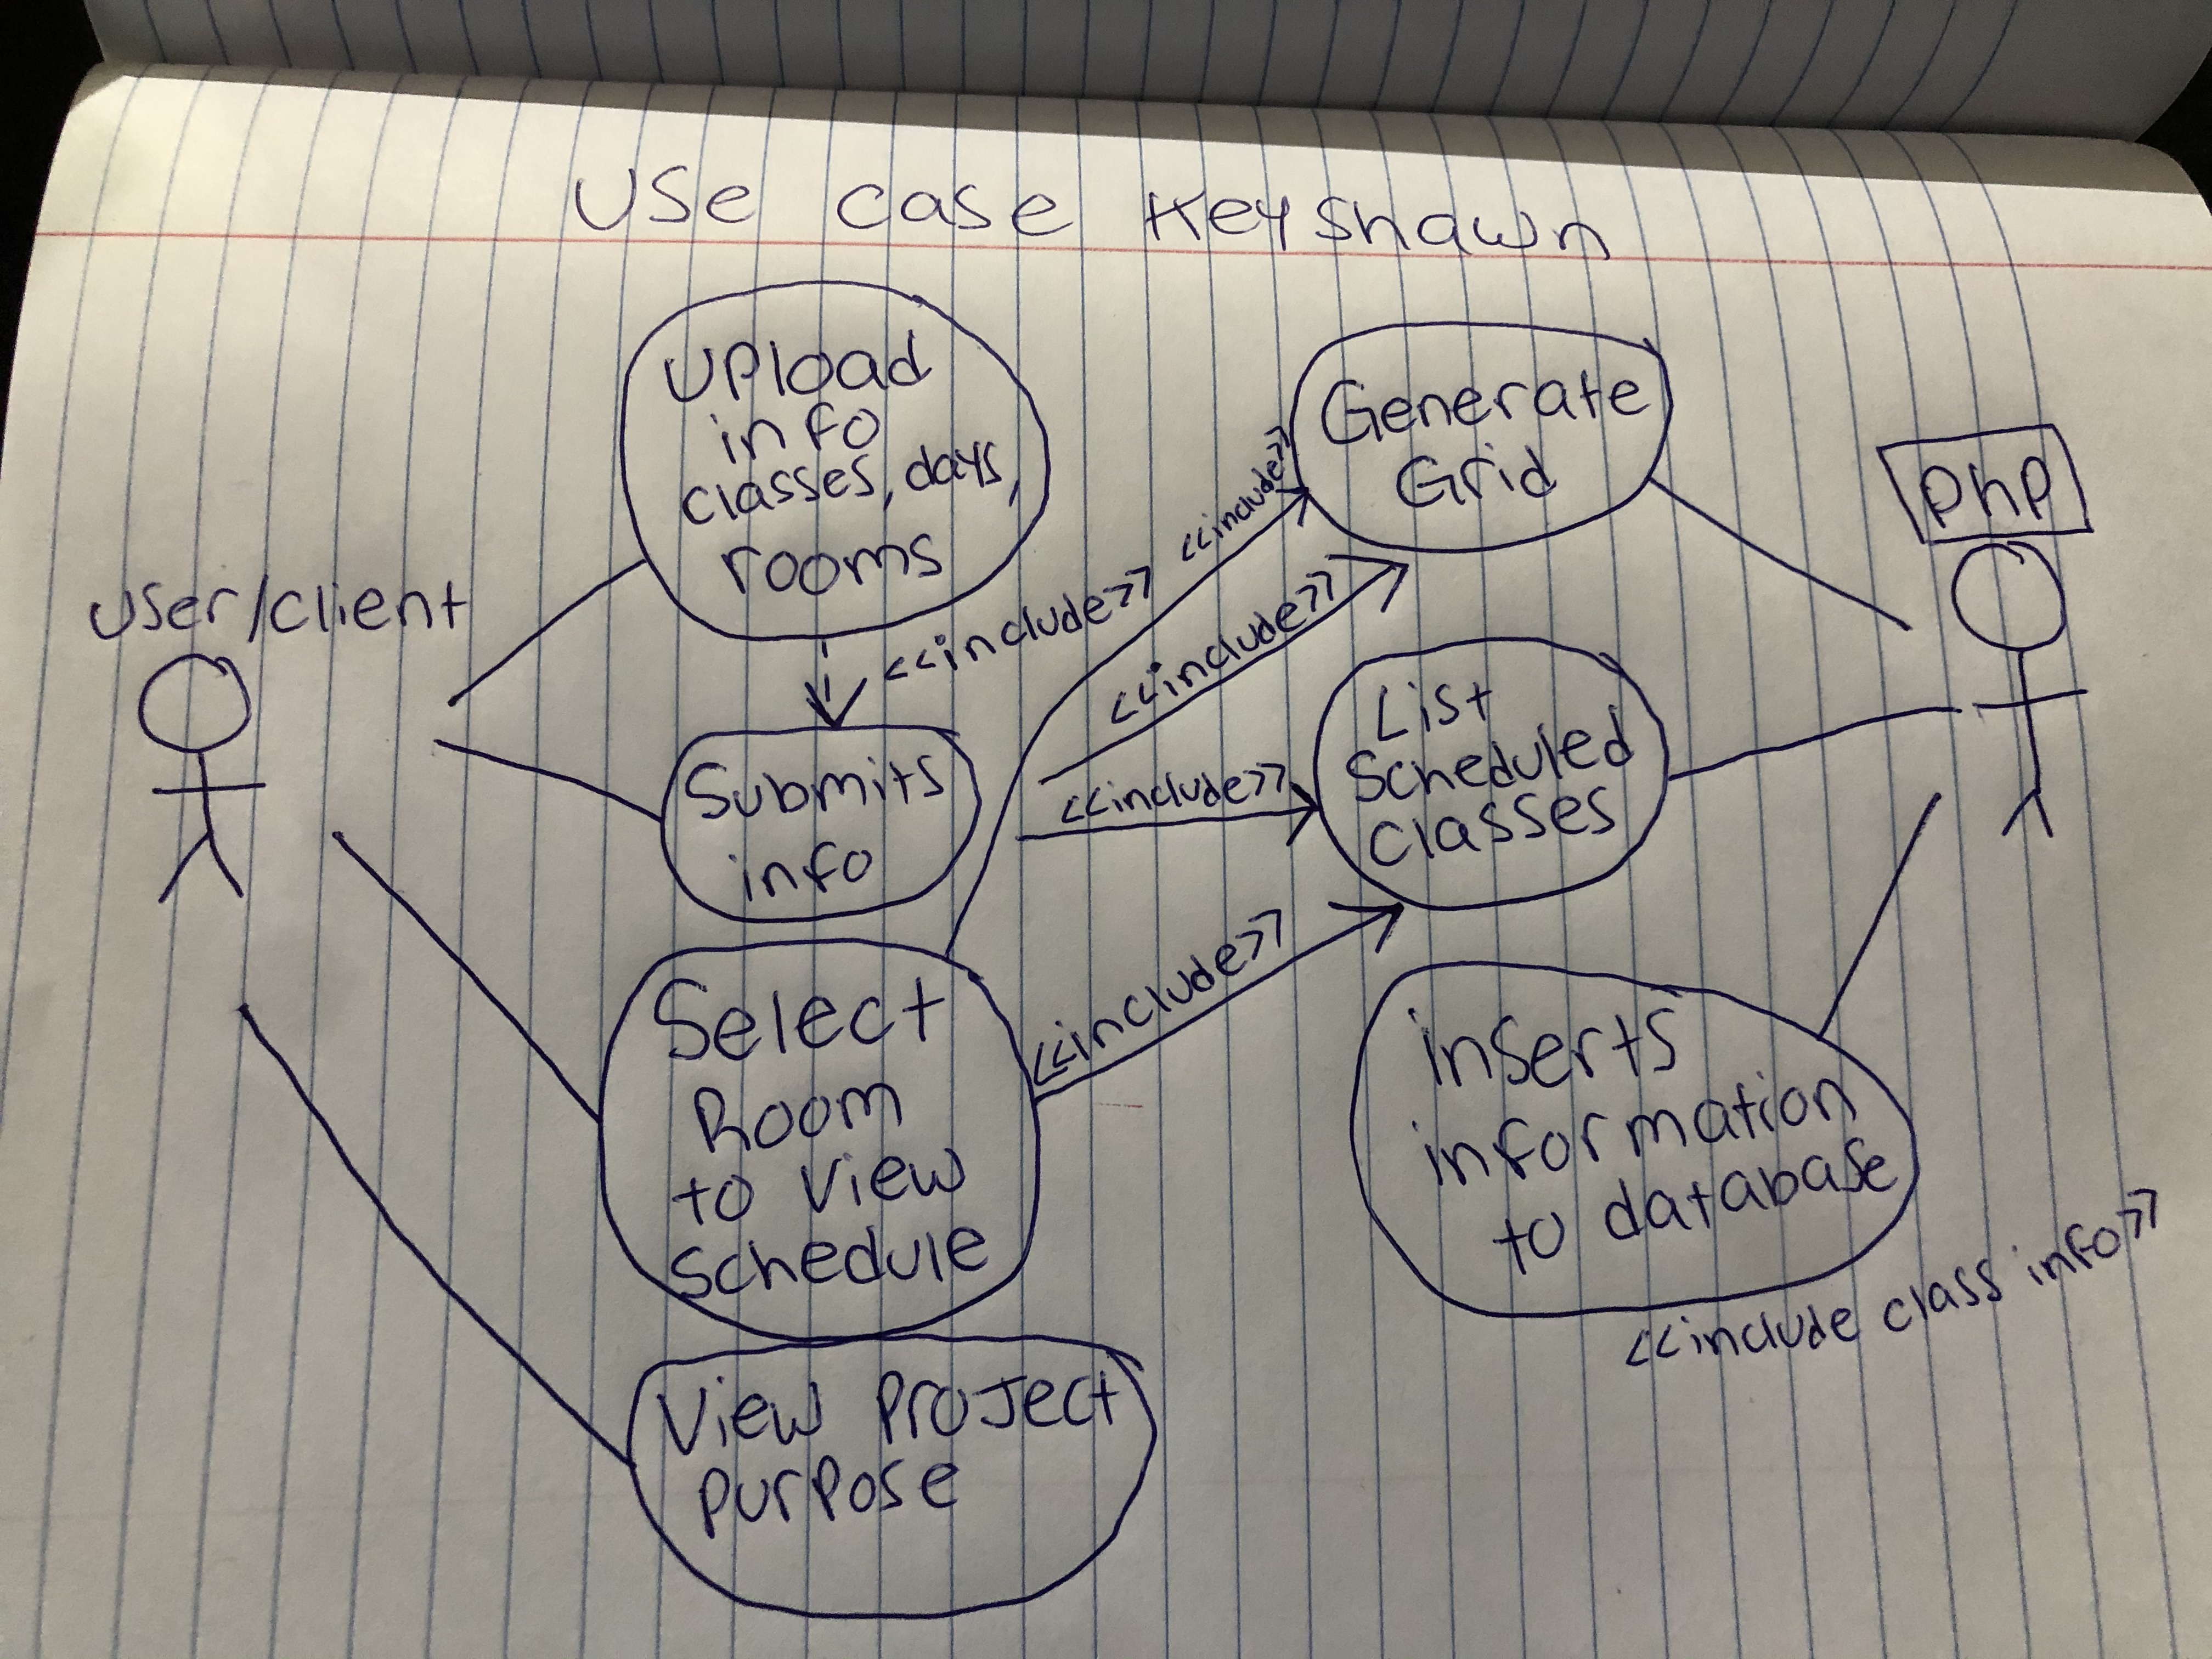 Use case Heyshawn
User/client
Upload
info
classes, days,
rooms
<<include>>
Submits
info
Select
Room
to view
schedule
View project
purpose
<<include>>
<<include>>
<<include>>
<<include>>
Generate
Grid
List
scheduled
classes
inserts
information
to database
<<include class info>>
php